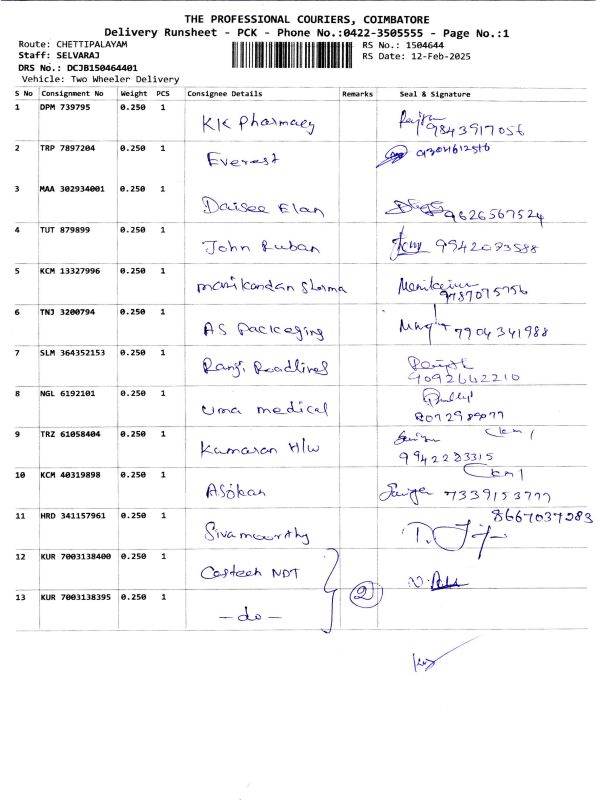 THE PROFESSIONAL COURIERS, COIMBATORE
Delivery Runsheet - PCK - Phone No.:0422-3505555 - Page No.:1
Route: CHETTIPALAYAM RS No.: 1504644
Staff: SELVARAJ RS Date: 12-Feb-2025
DRS No.: DCJB150464401
Vehicle: Two Wheeler Delivery
S No Consignment No Weight PCS Consignee Details Remarks Seal & Signature
1 DPM 739795 0.250 1 KK Pharmacy 9843917056
2 TRP 7897204 0.250 1 Everest
3 MAA 302934001 0.250 1 Daisee Elan 9626567524
4 TUT 879899 0.250 1 John Ruban 9942093588
5 KCM 13327996 0.250 1 Manikandan Sharma
6 TNJ 3200794 0.250 1 AS Packaging 7904341988
7 SLM 364352153 0.250 1 9092642210
8 NGL 6192101 0.250 1 Uma medical
9 TRZ 61058404 0.250 1 Kumaran H/W
10 KCM 40319898 0.250 1 Asokan
11 HRD 341157961 0.250 1 Sivamoorthy 8667037283
12 KUR 7003138400 0.250 1 NDT
13 KUR 7003138395 0.250 1 - do - 2